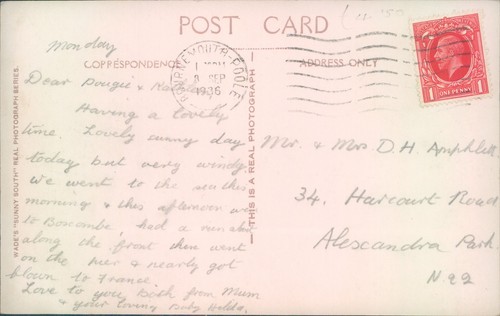 POST CARD
CORRESPONDENCE
ADDRESS ONLY
BOURNEMOUTH-POOLE
SEP
1936
ONE PENNY
1 1
WADE'S "SUNNY SOUTH" REAL PHOTOGRAPH SERIES.
THIS IS A REAL PHOTOGRAPH
Monday
Dear Dougie &
Having a lovely
time. Lovely sunny day
today but very windy
we went to the sea this
morning & this afternoon we
to Boscombe, had a run
along the front then went
on the pier & nearly got
blown to France.
Love to you Both from Mum
& your loving Hilda.
Mr. & Mrs D. H. Amphlett
34, Harcourt Road
Alexandra Park
N.22